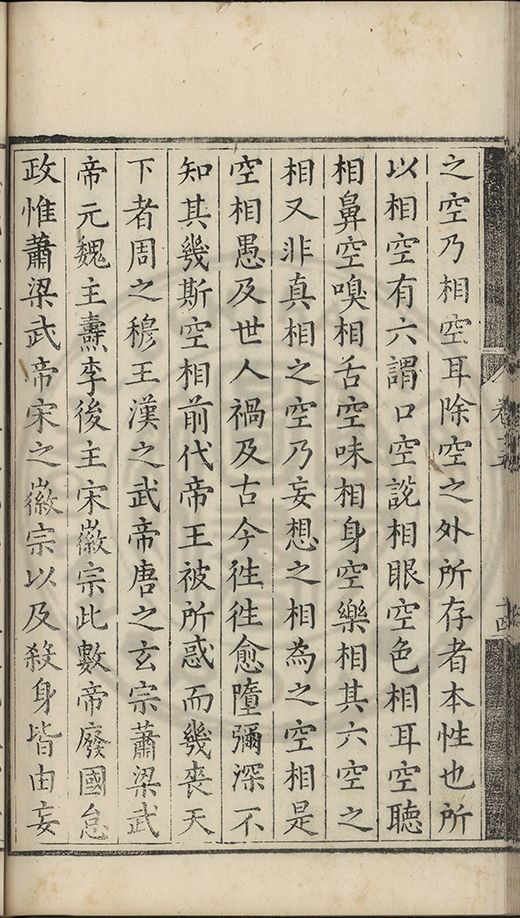 之空乃相空耳除空之外所存者本性也所
以相空有六謂口空說相眼空色相耳空聽
相鼻空嗅相舌空味相身空樂相其六空之
相又非真相之空乃妄想之相為之空相是
空相愚及世人禍及古今徃徃愈墮彌深不
知其幾斯空相前代帝王被所惑而幾喪天
下者周之穆王漢之武帝唐之玄宗蕭梁武
帝元魏主燾李後主宋徽宗此數帝廢國怠
政惟蕭梁武帝宋之徽宗以及殺身皆由妄